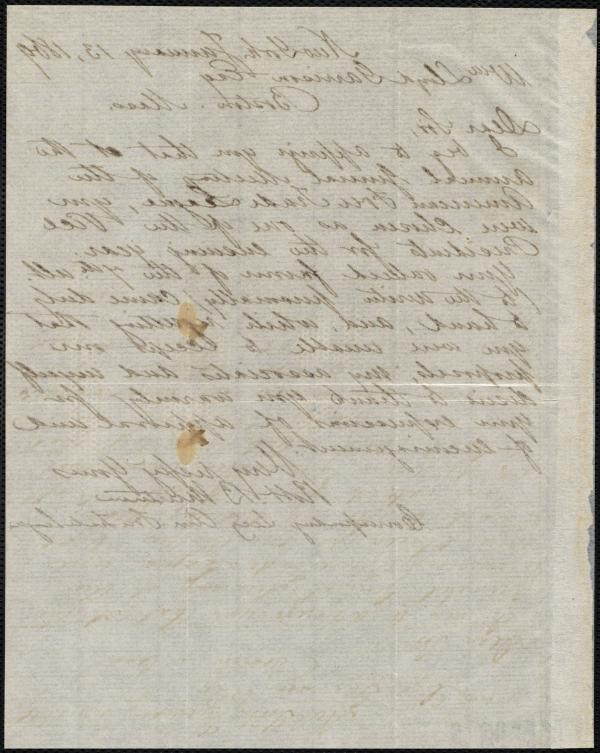 New York, January 13, 1869
Wm Lloyd Garrison Esq
Boston. Mass.
Dear Sir,
I beg to apprise you that at the
annual general Meeting of the
American Free Trade League, you
were chosen as one of the Vice
Presidents for the ensuing year.
Your valued favor of the 7th ult
(to the writer personally) came duly
to hand, and while regretting that
you were unable to accept our
proposals, my associate and myself
desire to thank you warmly for
your expressions of approval and
of encouragement.
Very respy Yours
Corresponding Secy Am Free Trade League